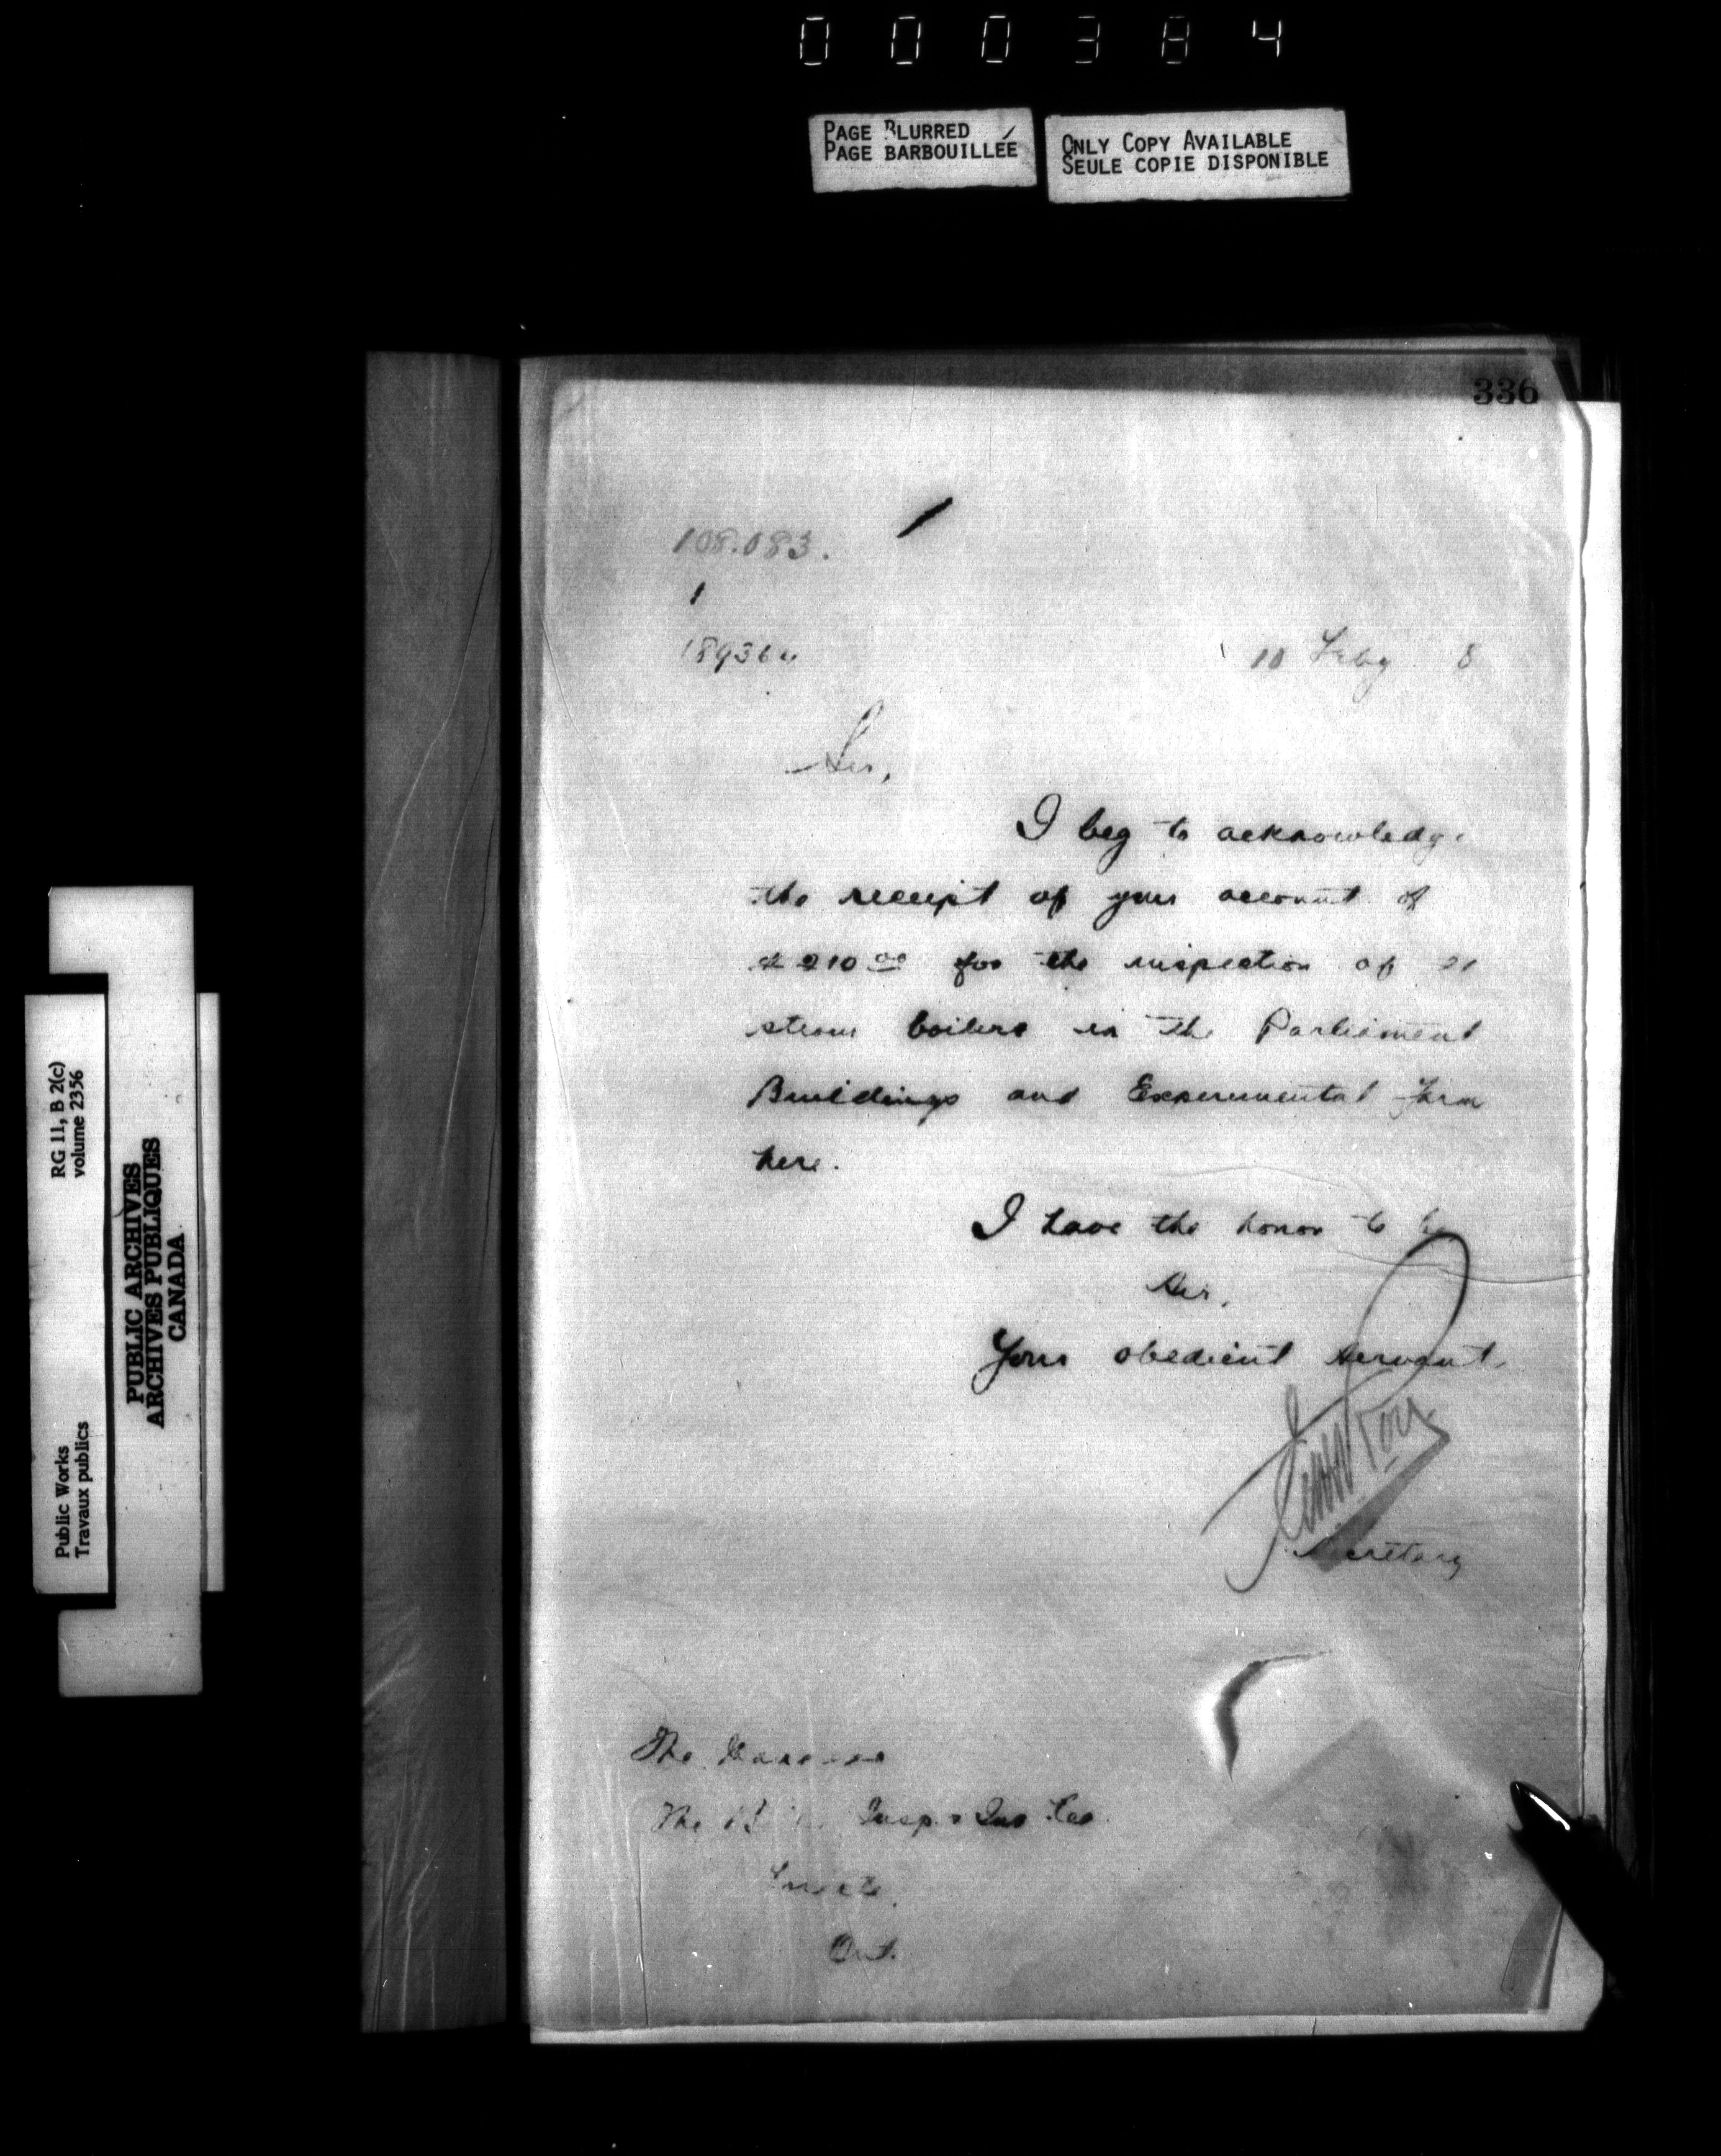 000384
PAGE BLURRED
PAGE BARBOUILLÉE
ONLY COPY AVAILABLE
SEULE COPIE DISPONIBLE
336
108.083.
1
10 Feby 8
Sir,
I beg to acknowledge
the receipt of your account of
$210 00 for the inspection of 21
steam boilers in the Parliament
Buildings and Experimental Farm
here.
I have the honor to be
Sir,
Your obedient servant,
Secretary
The
The Insp & Ins Co
Ont.
RG 11, B 2(c)
volume 2356
PUBLIC ARCHIVES
ARCHIVES PUBLIQUES
CANADA
Public Works
Travaux publics